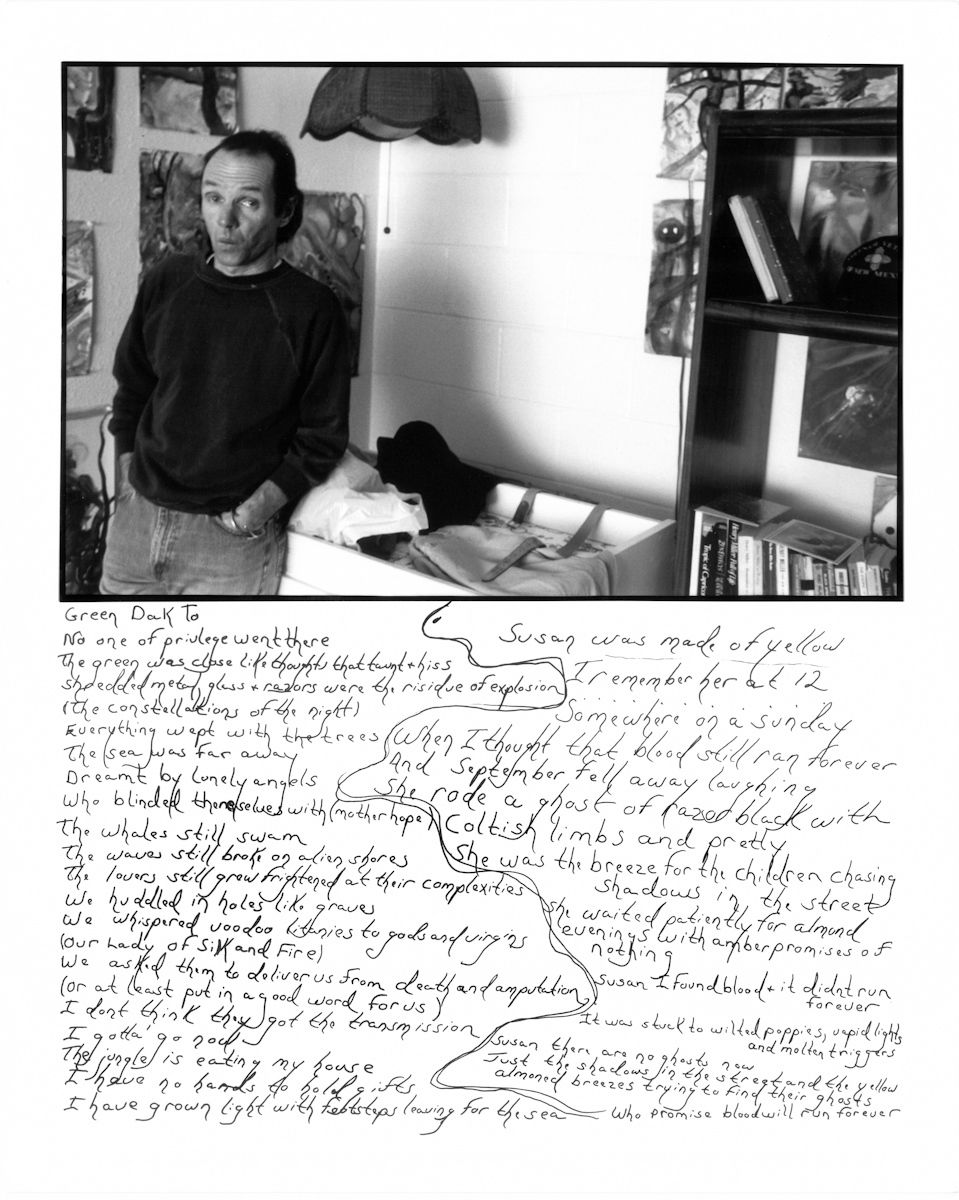 Henry Miller
Tropic of Capricorn
Green Dak To
No one of privlege went there
The green was close like thoughts that taunt + hiss
shredded metal, glass + razors were the risidue of explosion
(The constellations of the night)
Everything wept with the trees
The sea was far away
Dreamt by lonely angels
Who blinded themselves with (motherhope)
The whales still swam
The waves still broke on alien shores
The lovers still grew frightened at their complexities
We huddled in holes like graves
We whispered voodoo litanies to gods and virgins
(Our Lady of Silk and Fire)
We asked them to deliver us from death and amputation
(or at least put in a good word for us)
I dont think they got the transmission
I gotta go now
The jungle is eating my house
I have no hands to hold gifts
I have grown light with footsteps leaving for the sea
Susan was made of yellow
I remember her at 12
Somewhere on a sunday
When I thought that blood still ran forever
And September fell away laughing
She rode a ghost of razor black with
Coltish limbs and pretty
She was the breeze for the children chasing
shadows in the street
she waited patiently for almond
evenings with amber promises of
nothing
Susan I found blood + it didnt run
forever
It was stuck to wilted poppies, vapid lights
and molten triggers
Susan there are no ghosts now
Just the shadows in the street and the yellow
almoned breezes trying to find their ghosts
Who promise blood will run forever